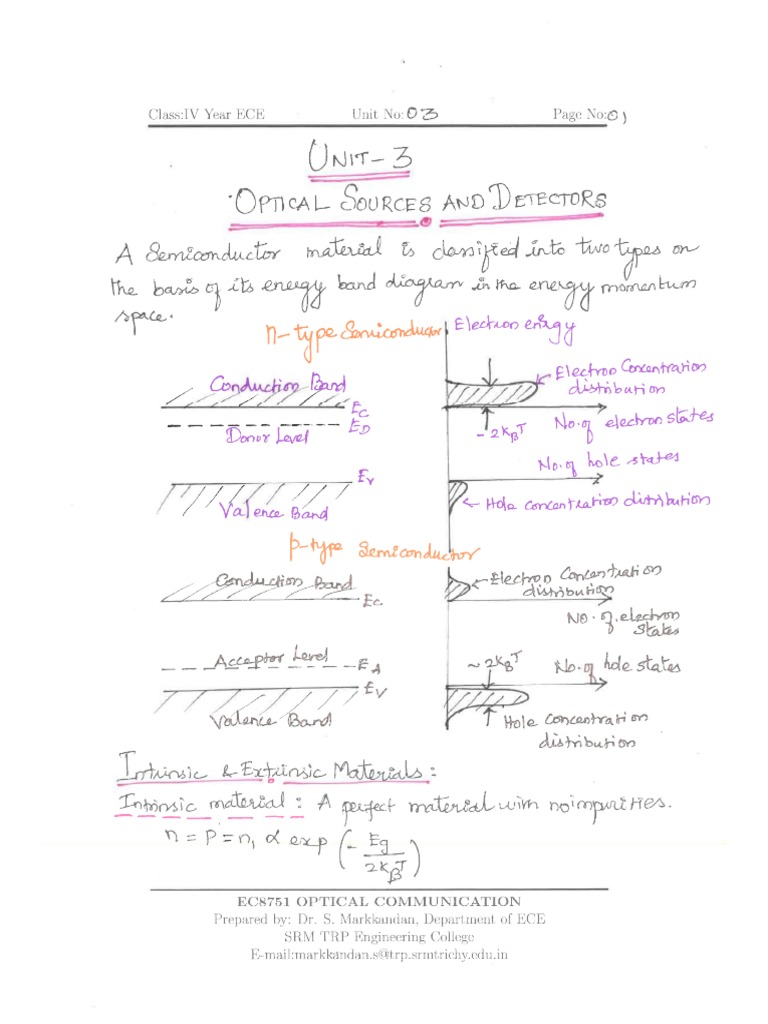 Class:IV Year ECE Unit No:03 Page No:01
UNIT-3
OPTICAL SOURCES AND DETECTORS
A Semiconductor material is classified into two types on
the basis of its energy band diagram in the energy momentum
space.
n-type Semiconductor
Electron energy
Conduction Band
Electron Concentration
distribution
EC
ED
Donor Level
~2KBT
No. of electron states
No. of hole states
EV
Valence Band
Hole concentration distribution
p-type Semiconductor
Conduction Band
Electron Concentration
distribution
EC
No. of electron
states
Acceptor Level
EA
~2KBT
No. of hole states
EV
Valence Band
Hole Concentration
distribution
Intrinsic & Extrinsic Materials:
Intrinsic material: A perfect material with no impurities.
n = P = ni α exp (- Eg
2KBT)
EC8751 OPTICAL COMMUNICATION
Prepared by: Dr. S. Markkandan, Department of ECE
SRM TRP Engineering College
E-mail:markkandan.s@trp.srmtrichy.edu.in